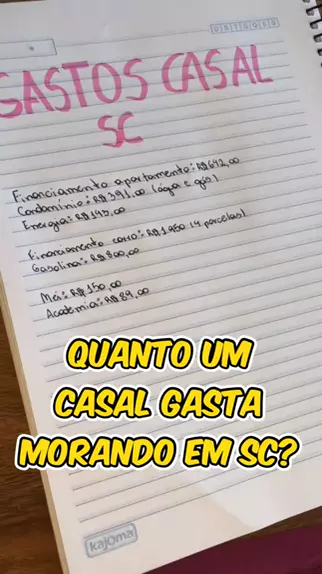 GASTOS CASAL
SC
Financiamento apartamento: R$642,00
Condomínio: R$391,00 (água e gás)
Energia: R$145,00
Financiamento carro: R$1.950 (4 parcelas)
Gasolina: R$800,00
Mei: R$150,00
Academia: R$89,00
QUANTO UM
CASAL GASTA
MORANDO EM SC?
kajoma